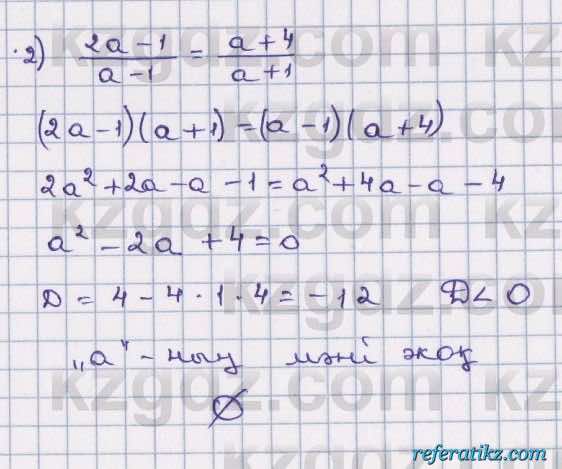 2) (2a-1)/(a-1) = (a+4)/(a+1)
(2a-1)(a+1)=(a-1)(a+4)
2a²+2a-a-1=a²+4a-a-4
a²-2a+4=0
D=4-4·1·4=-12 D<0
„a"-ның мәні жоқ
∅
kzgdz.com
referatikz.com